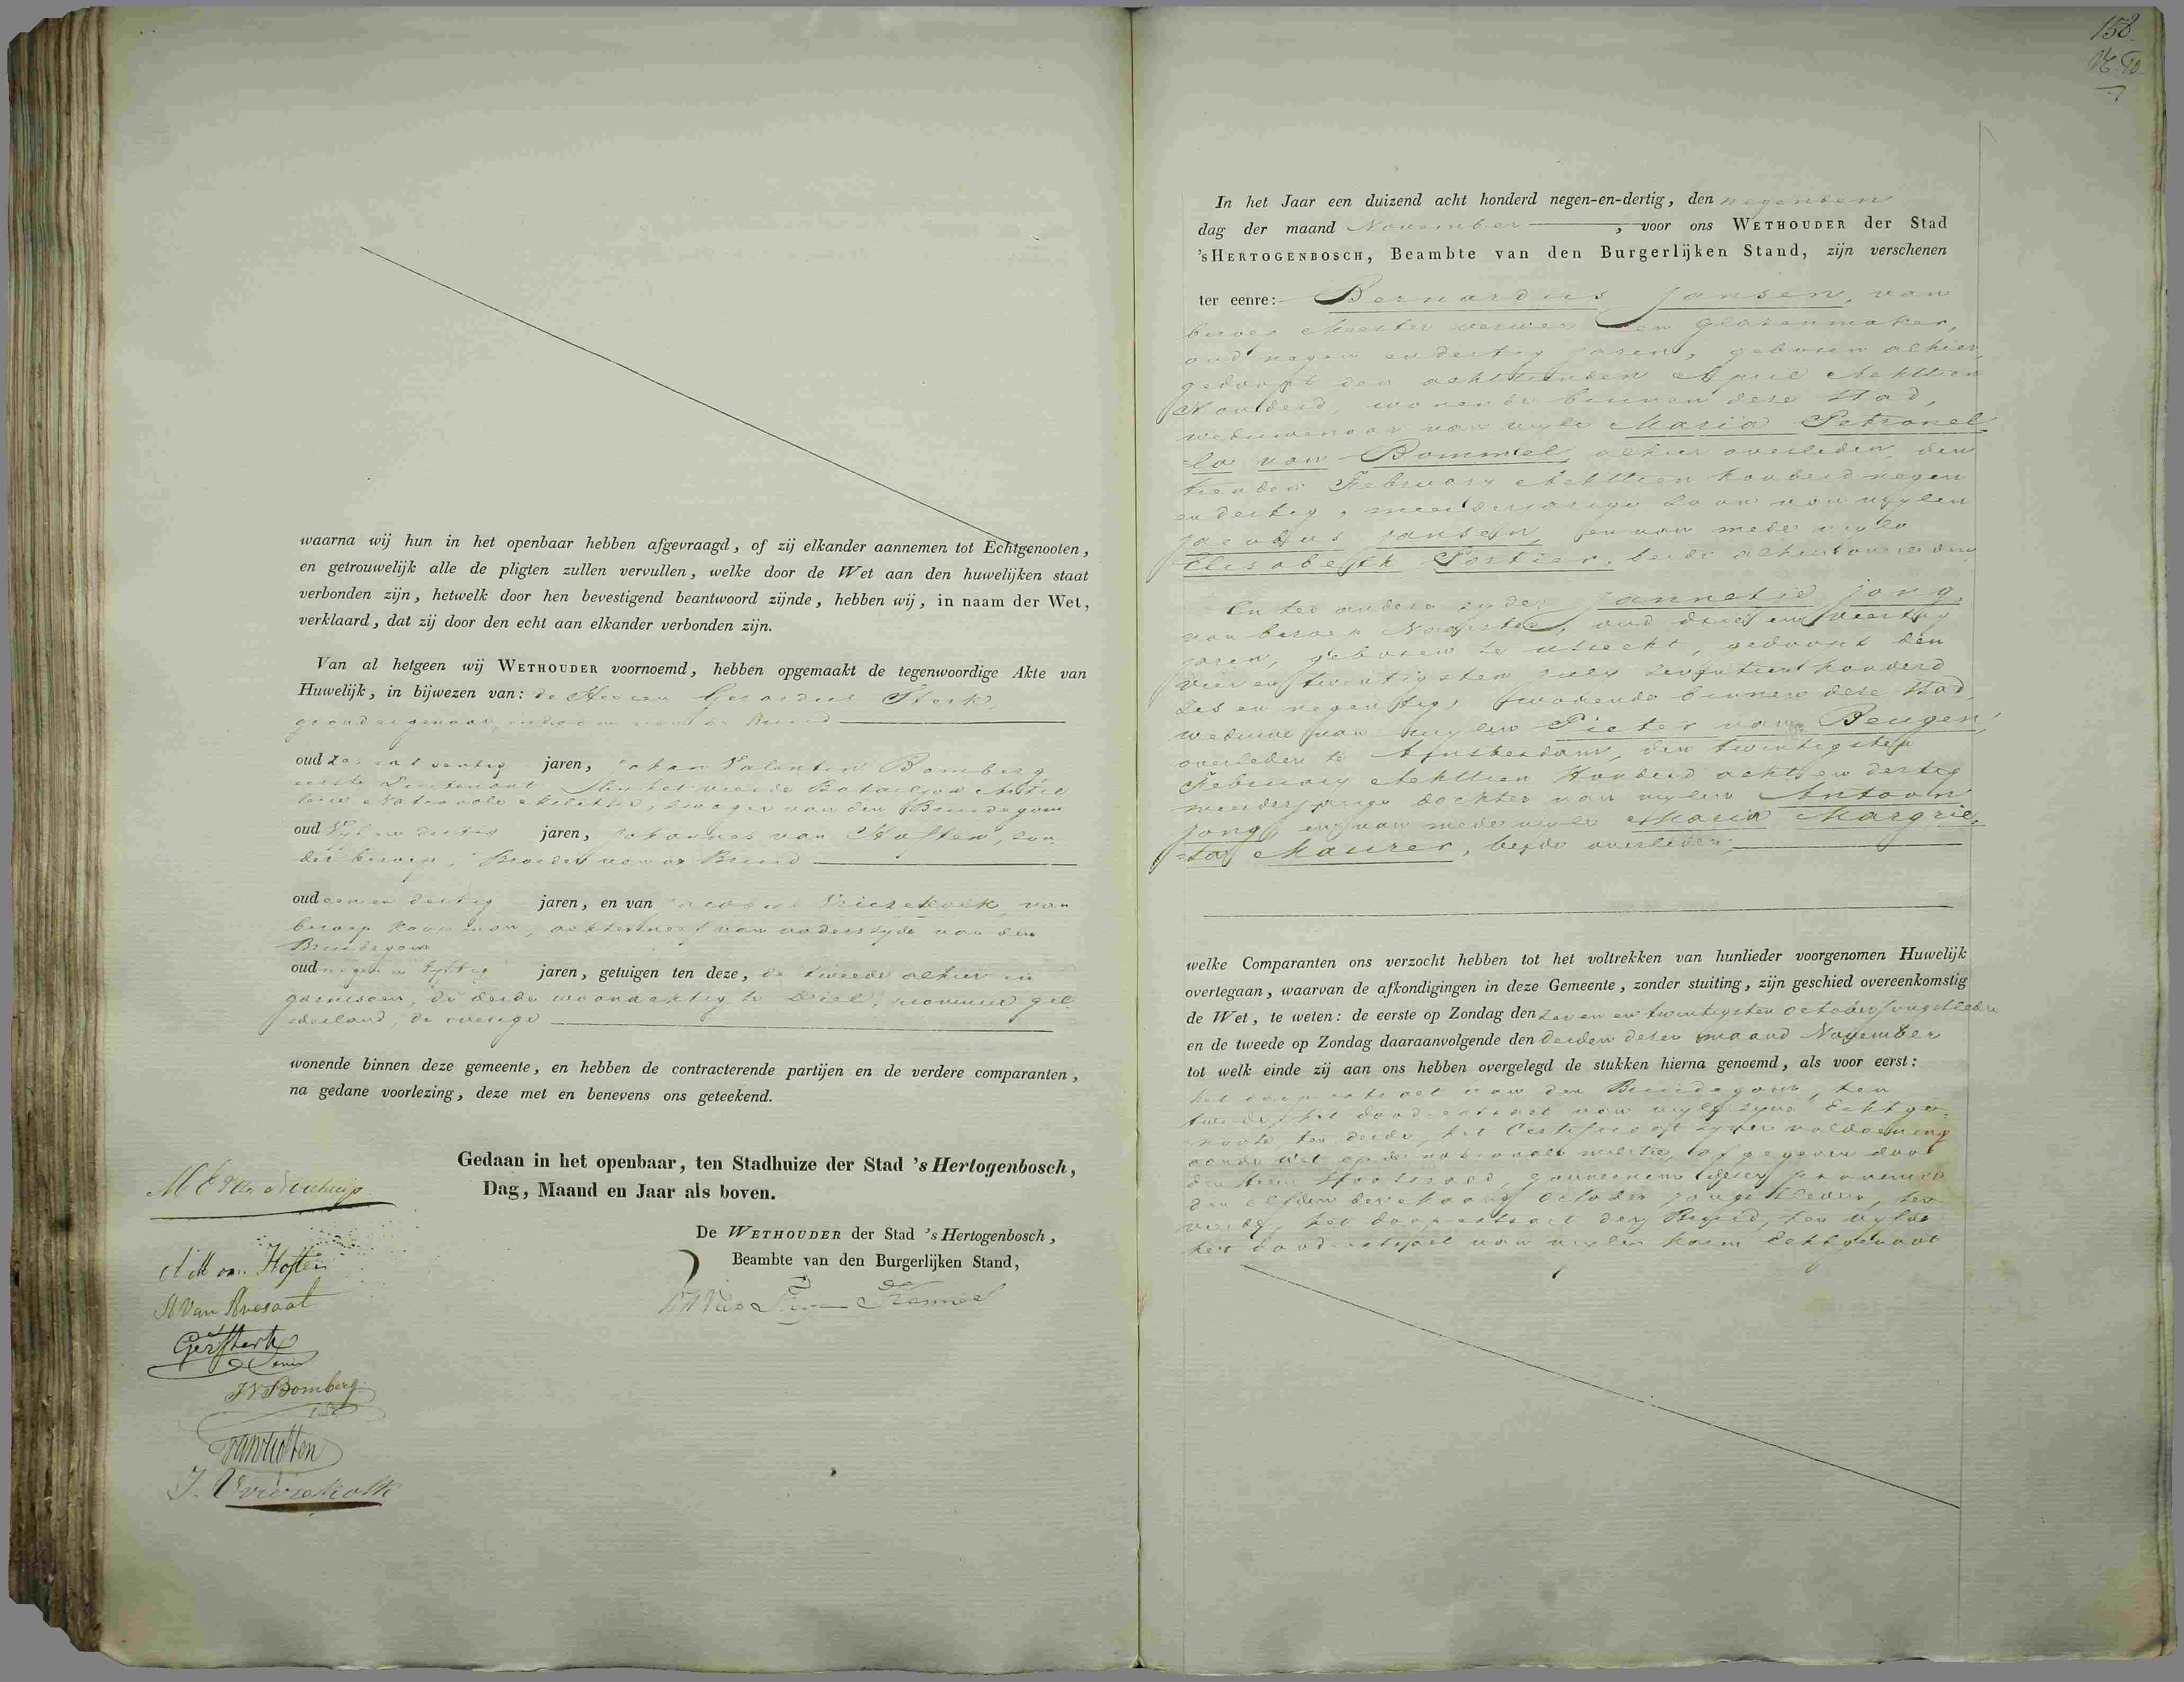 waarna wij hun in het openbaar hebben afgevraagd, of zij elkander aannemen tot Echtgenooten,
en getrouwelijk alle de pligten zullen vervullen, welke door de Wet aan den huwelijken staat
verbonden zijn, hetwelk door hen bevestigend beantwoord zijnde, hebben wij, in naam der Wet,
verklaard, dat zij door den echt aan elkander verbonden zijn.
Van al hetgeen wij WETHOUDER voornoemd, hebben opgemaakt de tegenwoordige Akte van
Huwelijk, in bijwezen van: de Heeren Gerardus Sterk,
oud jaren, Johan Valentin Bomberg,
eerste Luitenant bij het vierde Bataillon Artil
lerie Nationale Militie, zwager van den Bruidegom
oud Vijf en dertig jaren, Johannes van Hoften, zon
der beroep, Broeder van de Bruid
oud een en dertig jaren, en van Jacobus Vriesekolk, van
beroep koopman, achterneef van vaderszyde van den
Bruidegom
oud negen en vyftig jaren, getuigen ten deze, de tweede alhier in
garnisoen, de derde woonachtig te Driel, provincie Gel
derland, de overige
wonende binnen deze gemeente, en hebben de contracterende partijen en de verdere comparanten,
na gedane voorlezing, deze met en benevens ons geteekend.
Gedaan in het openbaar, ten Stadhuize der Stad 's Hertogenbosch,
Dag, Maand en Jaar als boven.
De WETHOUDER der Stad 's Hertogenbosch,
Beambte van den Burgerlijken Stand,
van Hoften
Gerr Sterk
J V Bomberg
van Hoften
J. Vriesekolk
158
In het Jaar een duizend acht honderd negen-en-dertig, den negenden
dag der maand November, voor ons WETHOUDER der Stad
'sHERTOGENBOSCH, Beambte van den Burgerlijken Stand, zijn verschenen
ter eenre: Bernardus Jansen, van
beroep Meester verwer en glazenmaker,
oud negen en dertig jaren, geboren alhier,
gedoopt den achttienden April Achttien
Honderd, wonende binnen deze Stad,
weduwenaar van wyle Maria Petronel
la van Bommel, alhier overleden, den
tienden February Achttien honderd negen
en dertig, meerderjarige zoon van wylen
Jacobus Jansen, en van mede wyle
Elisabeth Portier, beide alhier overleden
En ter andere zyde: Jannetje Jong,
van beroep Naaister, oud drie en veertig
jaren, geboren te Utrecht, gedoopt den
vier en twintigsten July zeventien honderd
zes en negentig, wonende binnen deze Stad,
weduwe van wylen Pieter van Beugen,
overleden te Amsterdam, den twintigsten
February Achttien Honderd acht en dertig
meerderjarige dochter van wylen Antoon
Jong, en van mede wyle Maria Margrie-
ta Maurer, beyde overleden;
welke Comparanten ons verzocht hebben tot het voltrekken van hunlieder voorgenomen Huwelijk
overtegaan, waarvan de afkondigingen in deze Gemeente, zonder stuiting, zijn geschied overeenkomstig
de Wet, te weten: de eerste op Zondag den zeven en twintigsten October jongstleden
en de tweede op Zondag daaraanvolgende den derden dezer maand November
tot welk einde zij aan ons hebben overgelegd de stukken hierna genoemd, als voor eerst:
het doop-extract van den Bruidegom, ten
tweede, het dood-extract van wyle zyne Echtge-
noote, ten derde, het Certificaat zyner voldoening
aan de Wet op de nationale militie, afgegeven door
den Heer Staatsraad, gouverneur dezer provincie
den elfden October jongstleden, ten
vierde, het doop-extract der Bruid, ten vyfde
het dood-extract van wylen haren Echtgenoot